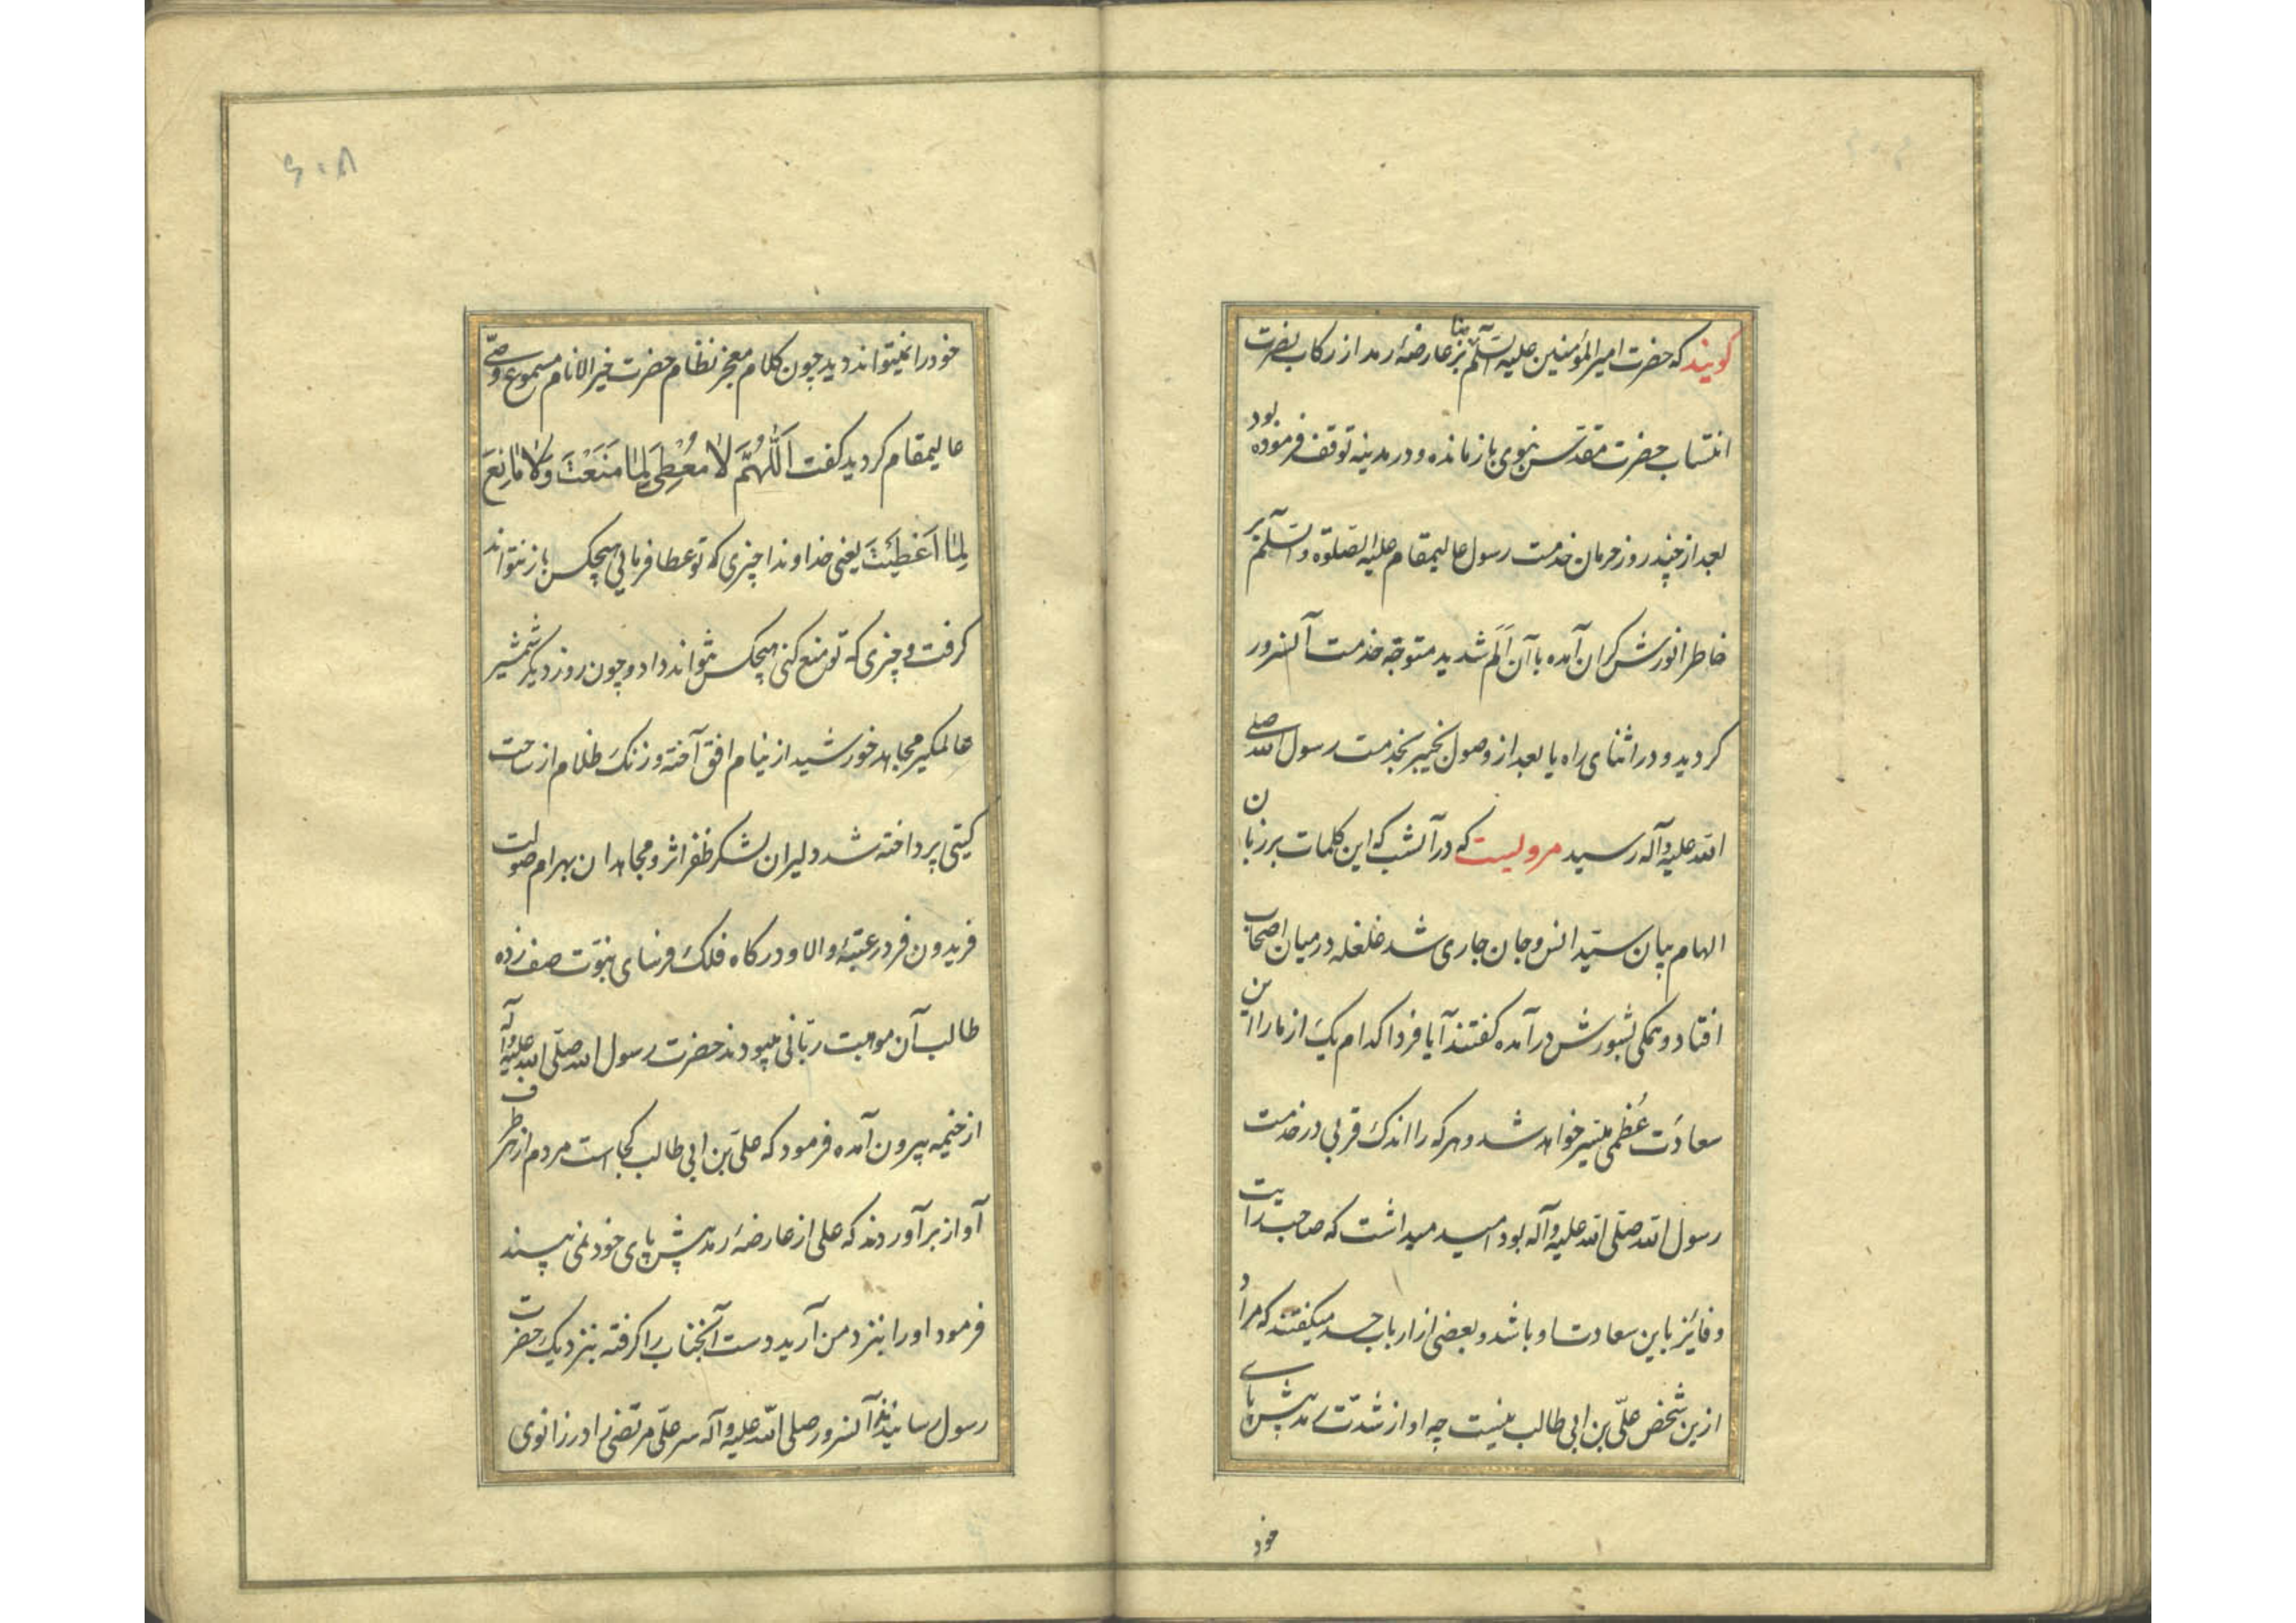 کویند که حضرت امیر المؤمنین علیه السلم بنا بر عارضۀ رمد از رکاب نصرت
انتساب حضرت مقدس نبوی بازمانده و در مدینه توقف فرموده بود
بعد از چند روز حرمان خدمت رسول عالیمقام علیه الصلوة والسلم بر
خاطر انورش کران آمده با آن اَلَم شدید متوجّه خدمت آنسرور
کردید و در اثنای راه یا بعد از وصول بخیبر بخدمت رسول الله صلی
الله علیه وآله رسید مرویست که در آنشب که این کلمات بر زبان
الهام بیان سیّد انس و جان جاری شد غلغله در میان اصحاب
افتاد و همکی بشورش درآمده کفتند آیا فردا کدام یک از ما را این
سعادت عُظمی میسّر خواهد شد و هر که را اندک قربی در خدمت
رسول الله صلّی الله علیه وآله بود امید میداشت که صاحب رایت
و فائز باین سعادت او باشد و بعضی از ارباب حسد میکفتند که مراد
ازین شخص علّی بن ابی طالب نیست چه او از شدّت رمد پیش پای
خود
۶۰۸
خود را نمیتواند دید چون کلام معجز نظام حضرت خیر الانام مسموع وصّی
عالیمقام کردید کفت اَللّهُمَّ لاٰ مُعْطِیَ لِمٰا مَنَعْتَ وَلاٰ مٰانِعَ
لِمٰا اَعْطَیْتَ یعنی خداوندا چیزی که تو عطا فرمایی هیچکس باز نتواند
کرفت و چیزی که تو منع کنی هیچکس نتواند داد و چون روز دیکر شمشیر
عالمکیر مجاهد خورشید از نیام افق آخته و زنک ظلام از ساحت
کیتی پرداخته شد دلیران لشکر ظفر اثر و مجاهدان بهرام صولت
فریدون فر در عتبۀ والا و درکاه فلک فرسای نبوّت صف زده
طالب آن موهبت ربّانی میبودند حضرت رسول الله صلّی الله علیه وآله
از خیمه بیرون آمده فرمود که علّی بن ابی طالب کجاست مردم از هر طرف
آواز برآوردند که علی از عارضۀ رمد پیش پای خود نمی بیند
فرمود او را بنزد من آرید دست آنجناب را کرفته بنزدیک حضرت
رسول رسانیدند آنسرور صلی الله علیه وآله سر علّی مرتضی را در زانوی